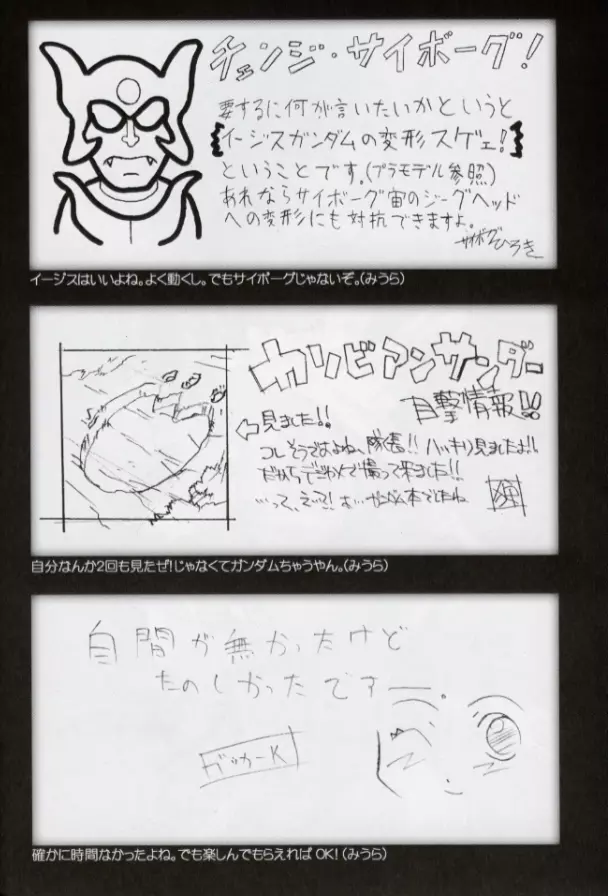 チェンジ・サイボーグ!
要するに何が言いたいかというと
イージスガンダムの変形スゲェ!
ということです。(プラモデル参照)
あれならサイボーグ宙のジーグヘッド
への変形にも対抗できますよ。
サイボーグひろき
イージスはいいよね。よく動くし。でもサイボーグじゃないぞ。(みうら)
カリビアンサンダー
目撃情報!!
見ました!!
コレそうですよね、隊長!!ハッキリ見ましたよ!!
自分なんか2回も見たぜ!じゃなくてガンダムちゃうやん。(みうら)
自間が無かったけど
たのしかったですー。
確かに時間なかったよね。でも楽しんでもらえれば OK!(みうら)